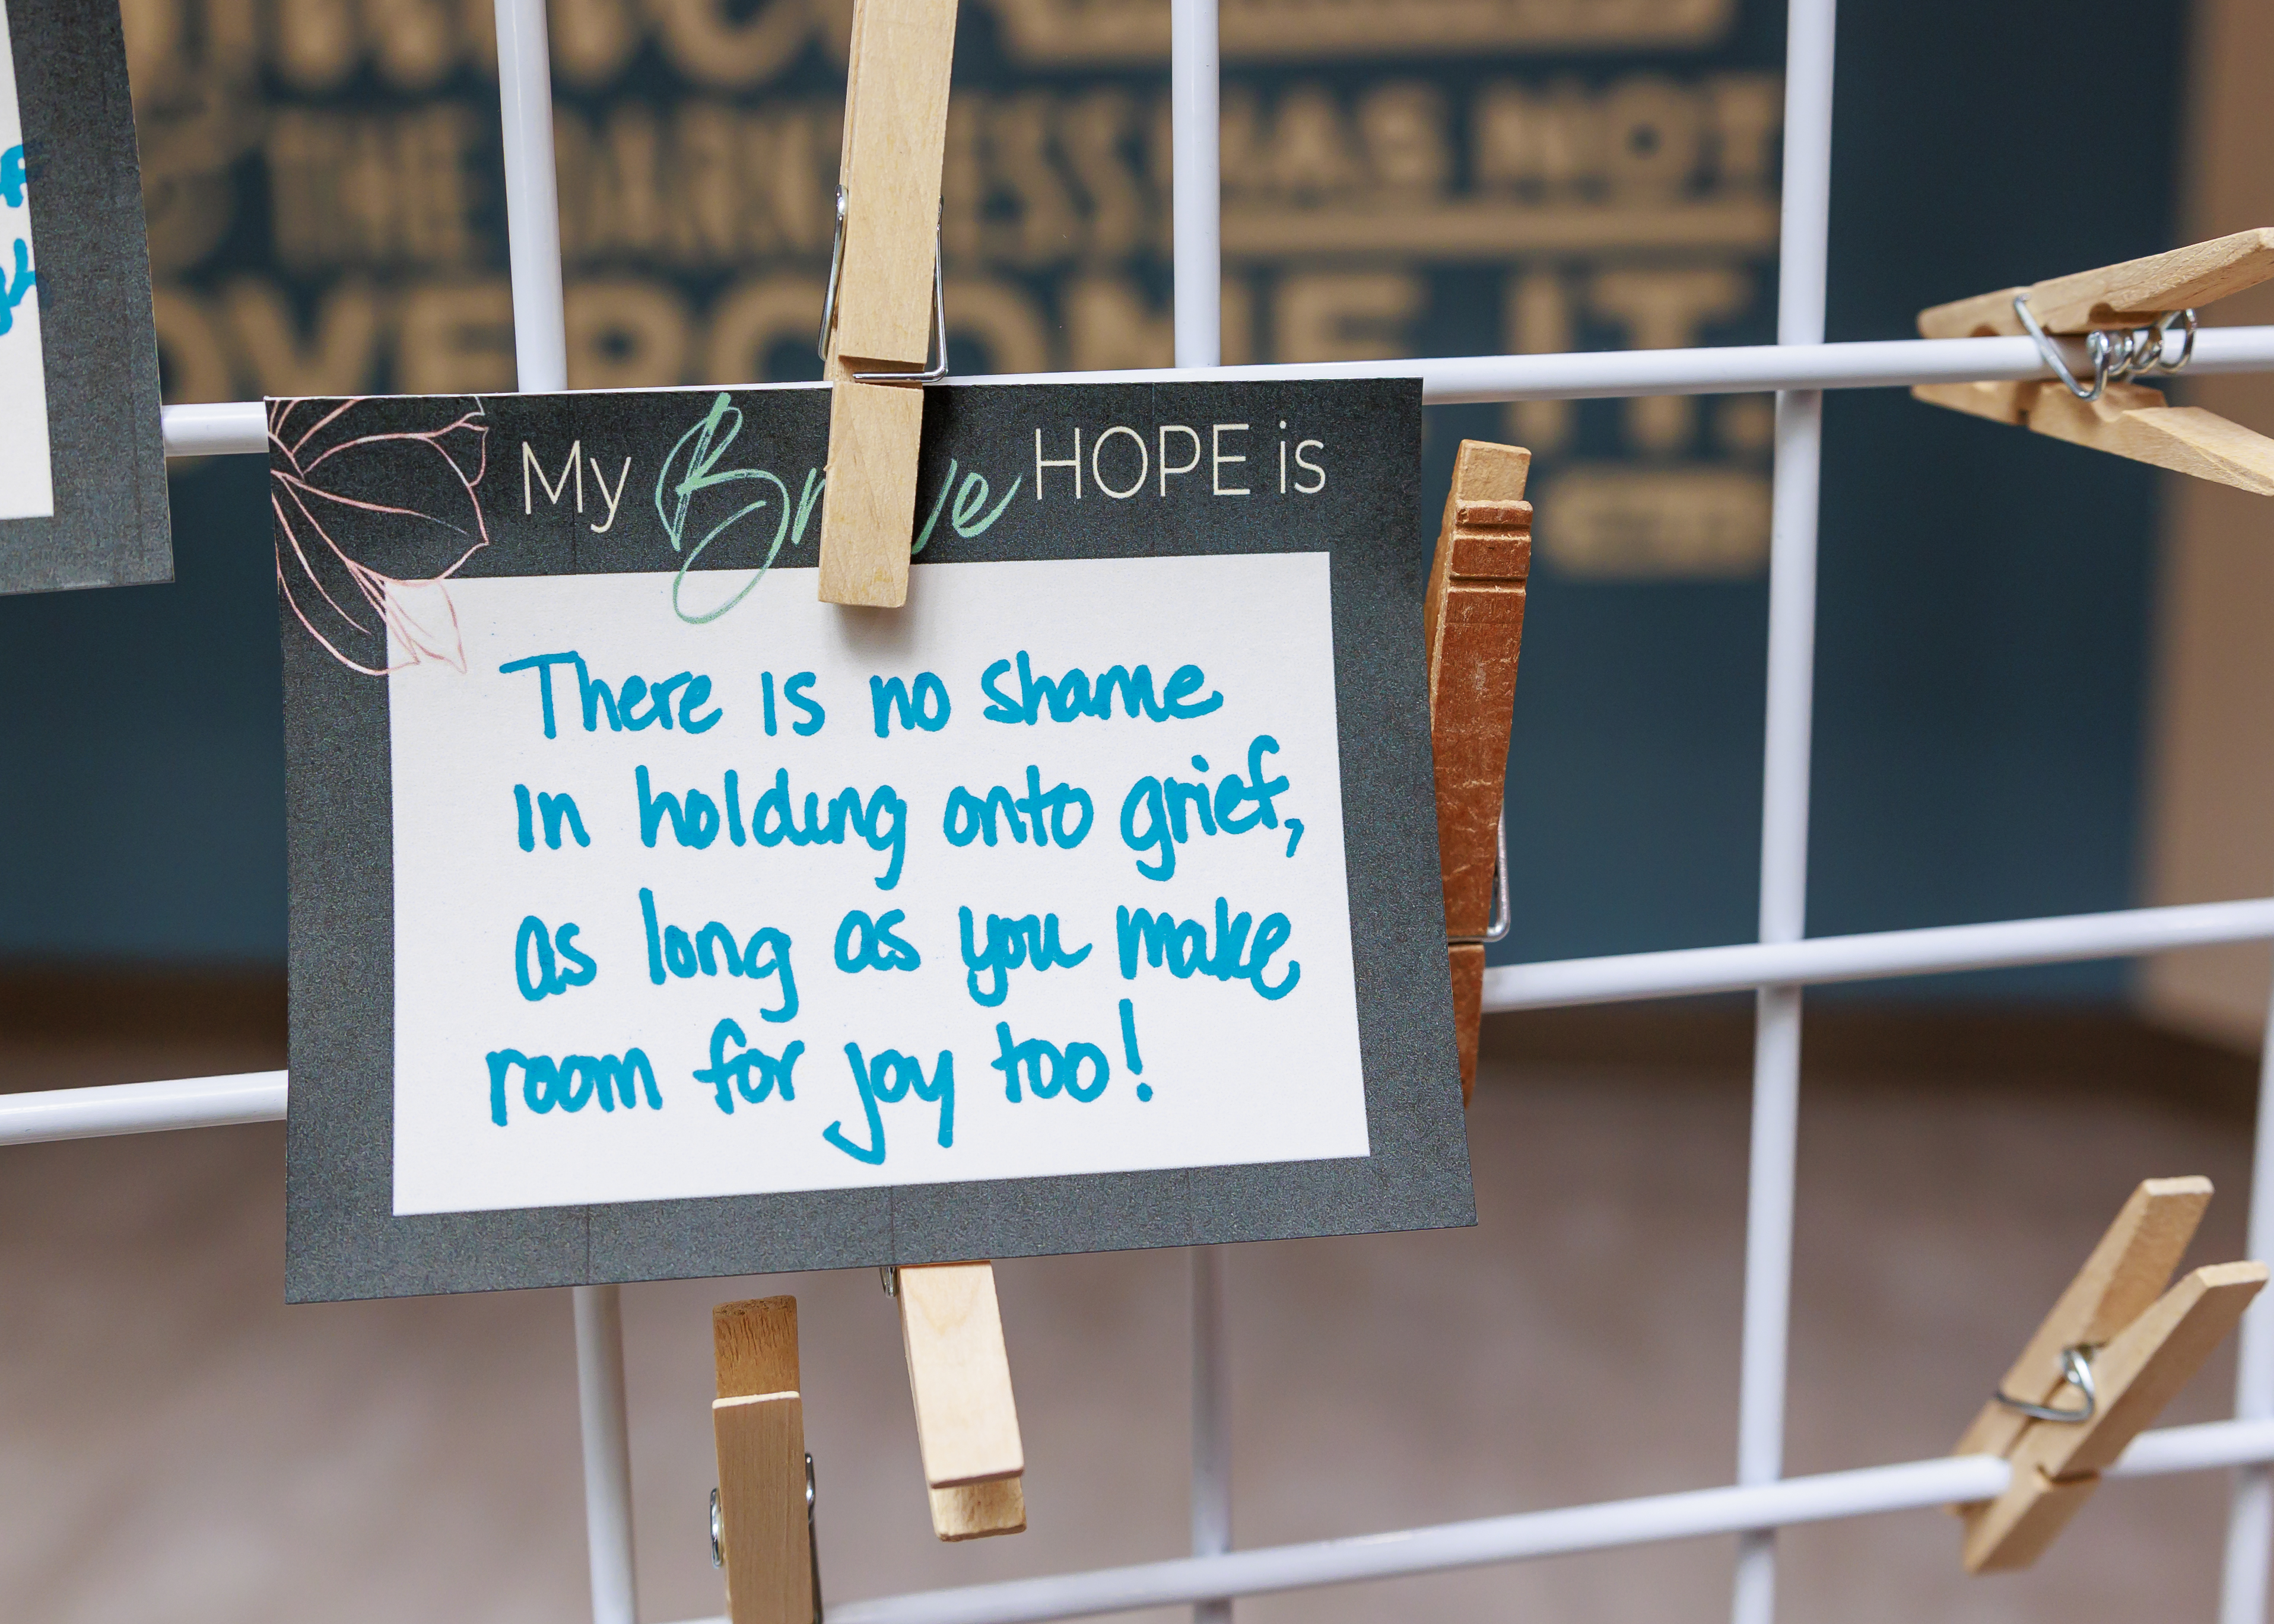 THE DARKNESS HAS NOT
OVERCOME IT.
My Brave HOPE is
There is no shame
in holding onto grief,
as long as you make
room for joy too!